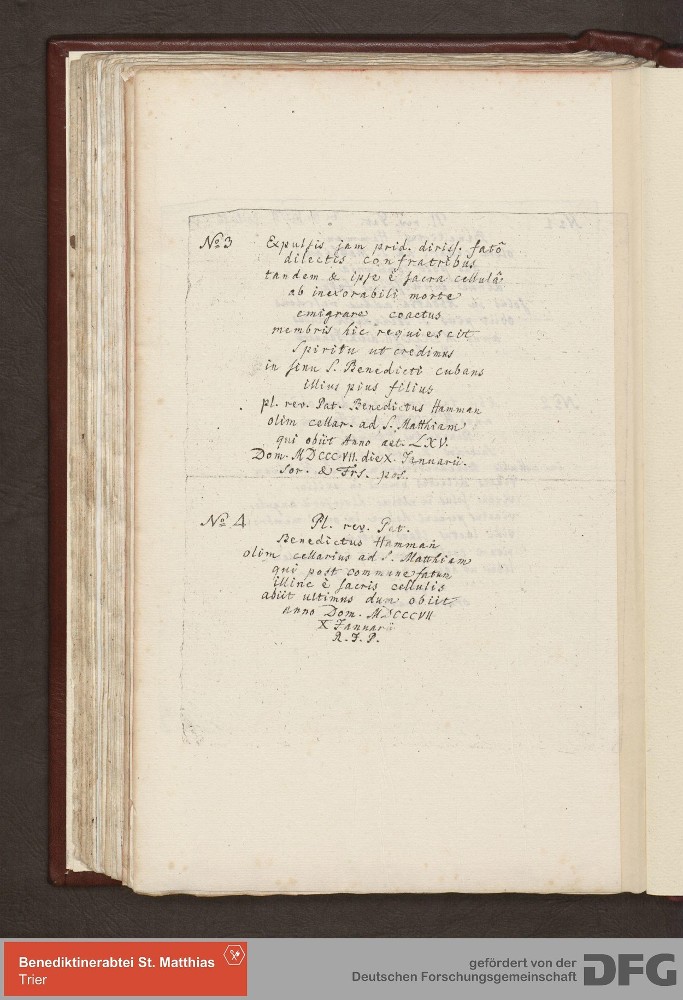 No 3 Expulsis jam prid. diriss. fatô
dilectis confratribus
tandem & ipse è sacra cellulâ
ab inexorabili morte
emigrare coactus
membris hic requiescit
Spiritu ut credimus
in sinu S. Benedicti cubans
illius pius filius
pl. rev. Pat. Benedictus Hamman
olim cellar. ad S. Matthiam
qui obiit Anno aet. LXV.
Dom. MDCCCVII. die X. Januarii.
Sor. & Frs. pos.
No 4 Pl. rev. Pat.
Benedictus Hamman
olim cellarius ad S. Matthiam
qui post commune fatum
illinc è sacris cellulis
abiit ultimus dum obiit
Anno Dom. MDCCCVII
X Januarii
R. I. P.
Benediktinerabtei St. Matthias
Trier
gefördert von der
Deutschen Forschungsgemeinschaft
DFG